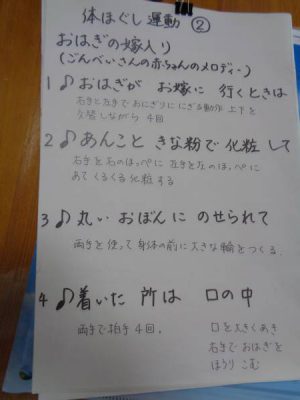 体ほぐし運動 ②
おはぎの嫁入り
(ごんべいさんの赤ちゃんのメロディー)
1 ♪ おはぎが お嫁に 行くときは
右手と左手で おにぎりに にぎる動作 上下を
交替しながら 4回
2 ♪ あんこと きな粉で 化粧して
右手を右のほっぺに 左手を左の ほっぺに
あて くるくる 化粧する
3 ♪ 丸い おぼんに のせられて
両手を使って 身体の前に 大きな輪を つくる.
4 ♪ 着いた 所は 口の中
両手で拍手 4回.
口を大きくあき
右手で おはぎを
ほうり こむ